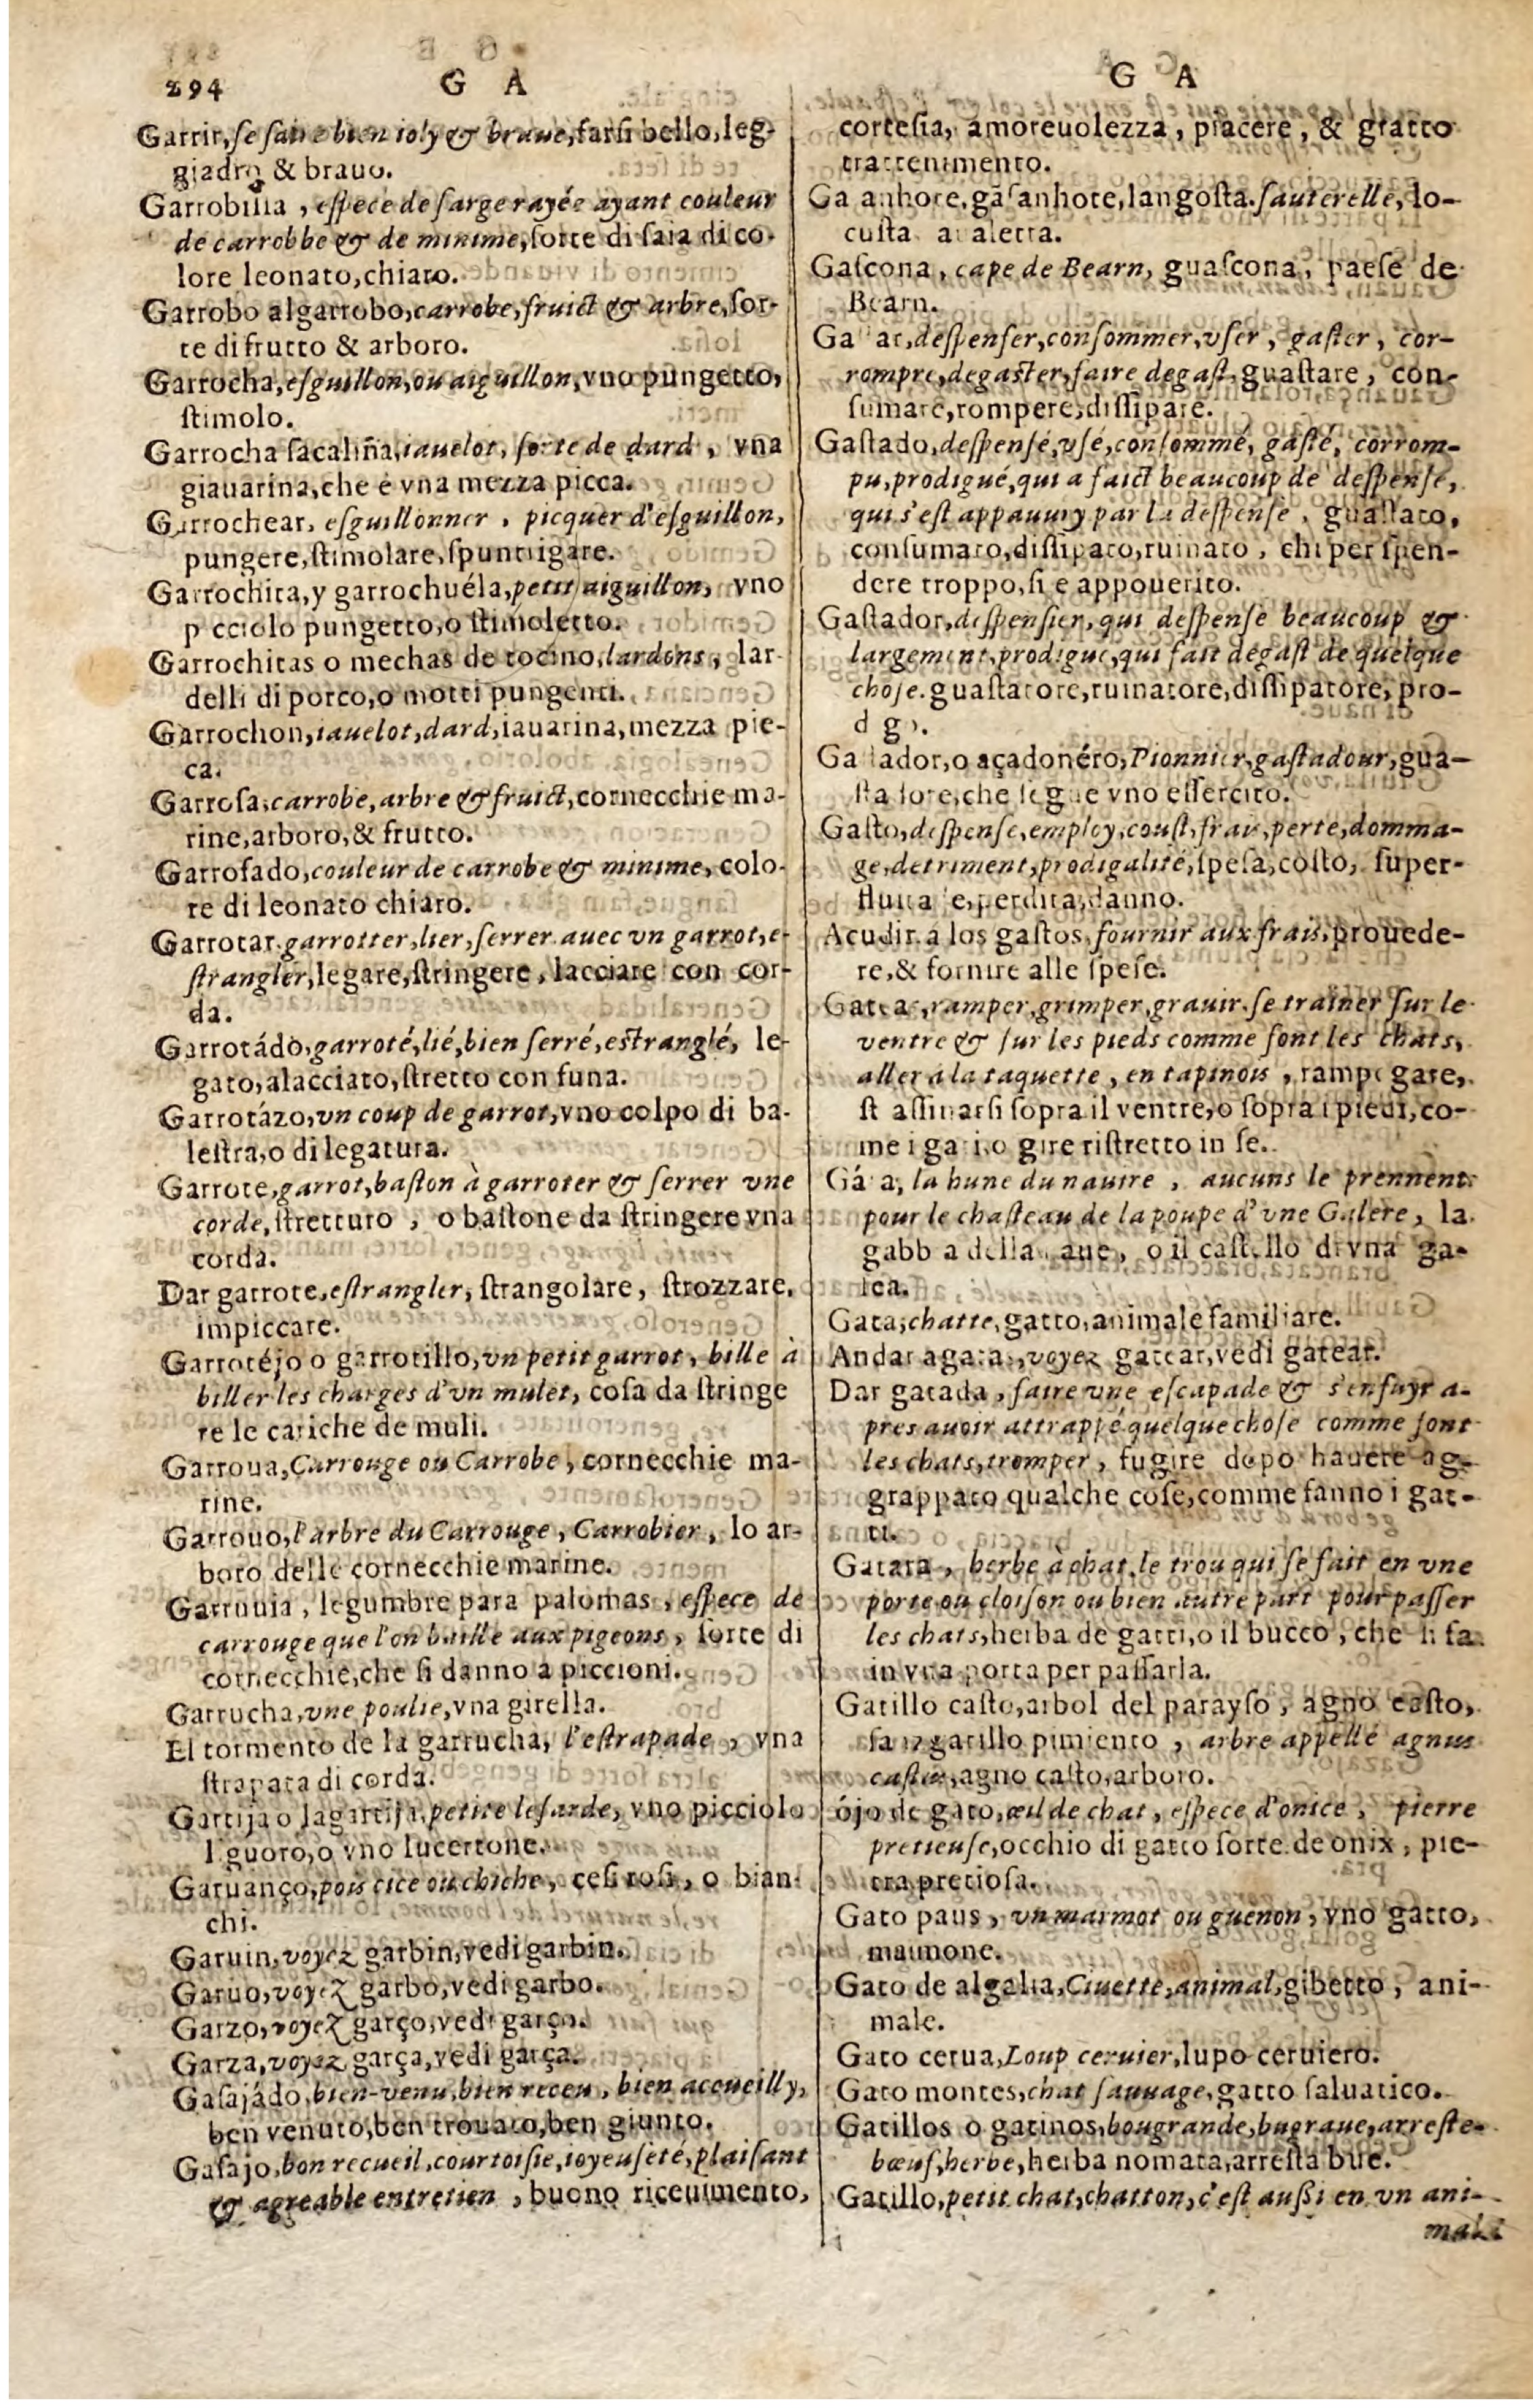 294 G A
Garrir, se faire bien ioly & braue, farsi bello, leg-
giadro & brauo.
Garrobilla, espece de sarge rayée ayant couleur
de carrobbe & de minime, sorte di saia di co-
lore leonato, chiaro.
Garrobo algarrobo, carrobe, fruict & arbre, sor-
te di frutto & arboro.
Garrocha, esguillon, ou aiguillon, vno pungetto,
stimolo.
Garrocha sacaliña, iauelot, sorte de dard, vna
giauarina, che è vna mezza picca.
Garrochear, esguillonner, picquer d'esguillon,
pungere, stimolare, spuntigare.
Garrochita, y garrochuéla, petit aiguillon, vno
p cciolo pungetto, o stimoletto.
Garrochitas o mechas de tocino, lardons, lar-
delli di porco, o motti pungenti.
Garrochon, iauelot, dard, iauarina, mezza pic-
ca.
Garrosa, carrobe, arbre & fruict, cornecchie ma-
rine, arboro, & frutto.
Garrofado, couleur de carrobe & minime, colo-
re di leonato chiaro.
Garrotar, garrotter, lier, serrer auec vn garrot, e-
strangler, legare, stringere, lacciare con cor-
da.
Garrotádo, garroté, lié, bien serré, estranglé, le-
gato, alacciato, stretto con funa.
Garrotázo, vn coup de garrot, vno colpo di ba-
lestra, o di legatura.
Garrote, garrot, baston à garroter & serrer vne
corde, stretturo, o bastone da stringere vna
corda.
Dar garrote, estrangler, strangolare, strozzare,
impiccare.
Garrotéjo o garrotillo, vn petit garrot, bille à
biller les charges d'vn mulet, cosa da stringe
re le cariche de muli.
Garroua, Carrouge ou Carrobe, cornecchie ma-
rine.
Garrouo, l'arbre du Carrouge, Carrobier, lo ar-
boro delle cornecchie marine.
Garruuia, legumbre para palomas, espece de
carrouge que l'on baille aux pigeons, sorte di
cornecchie, che si danno a piccioni.
Garrucha, vne poulie, vna girella.
El tormento de la garrucha, l'estrapade, vna
strapata di corda.
Gartija o lagartija, petite lesarde, vno picciolo
l guoro, o vno lucertone.
Garuanço, pois cice ou chiche, cesi rosi, o bian-
chi.
Garuin, voyez garbin, vedi garbin.
Garuo, voyez garbo, vedi garbo.
Garzo, voyez garço, vedi garço.
Garza, voyez garça, vedi garça.
Gasajádo, bien-venu, bien receu, bien accueilly,
ben venuto, ben trouato, ben giunto.
Gasajo, bon recueil, courtoisie, ioyeuseté, plaisant
& agreable entretien, buono riceuimento,
G A
cortesia, amoreuolezza, piacere, & gratto
trattenimento.
Ga anhote, gafanhote, langosta. sauterelle, lo-
custa a aletta.
Gascona, cape de Bearn, guascona, paese de
Bearn.
Ga ar, despenser, consommer, vser, gaster, cor-
rompre, degaster, faire degast, guastare, con-
sumare, rompere, dissipare.
Gastado, despensé, vsé, consommé, gasté, corrom-
pu, prodigué, qui a faict beaucoup de despense,
qui s'est appauury par la despense, guastato,
consumato, dissipato, ruinato, chi per spen-
dere troppo, si e appouerito.
Gastador, despensier, qui despense beaucoup &
largement, prodigue, qui fait degast de quelque
chose. guastatore, ruinatore, dissipatore, pro-
d go.
Ga tador, o açadonéro, Pionnier, gastadour, gua-
statore, che segue vno essercito.
Gasto, despense, employ, coust, frais, perte, domma-
ge, detriment, prodigalité, spesa, costo, super-
fluita e, perdita, danno.
Acudir á los gastos, fournir aux frais, prouede-
re, & fornire alle spese.
Gatear, ramper, grimper, grauir, se trainer sur le
ventre & sur les pieds comme font les chats,
aller à la taquette, en tapinois, rampegare,
st assinarsi sopra il ventre, o sopra i piedi, co-
me i gati, o gire ristretto in se.
Gá a, la hune du nauire, aucuns le prennent
pour le chasteau de la poupe d'vne Galere, la
gabb a della naue, o il castello di vna ga-
lea.
Gata, chatte, gatto, animale familiare.
Andar agatas, voyez gatear, vedi gatear.
Dar gatada, faire vne escapade & s'enfuyr a-
pres auoir attrappé quelque chose comme font
les chats, tromper, fugire dopo hauere ag-
grappato qualche cose, comme fanno i gat-
ti.
Gatara, herbe à chat, le trou qui se fait en vne
porte ou cloison ou bien autre part pour passer
les chats, herba de gatti, o il bucco, che si fa
in vna porta per passarla.
Gatillo casto, arbol del parayso, agno casto,
sauzgatillo pimiento, arbre appellé agnus
castus, agno casto, arboro.
ójo de gato, œil de chat, espece d'onice, pierre
pretieuse, occhio di gatto sorte de onix, pie-
tra pretiosa.
Gato paus, vn marmot ou guenon, vno gatto,
maimone.
Gato de algalia, Ciuette, animal, gibetto, ani-
male.
Gato cerua, Loup ceruier, lupo ceruiero.
Gato montes, chat sauuage, gatto saluatico.
Gatillos o gatinos, bougrande, bugraue, arreste-
bœuf, herbe, herba nomata, arresta bue.
Gatillo, petit chat, chatton, c'est aussi en vn ani-
mal